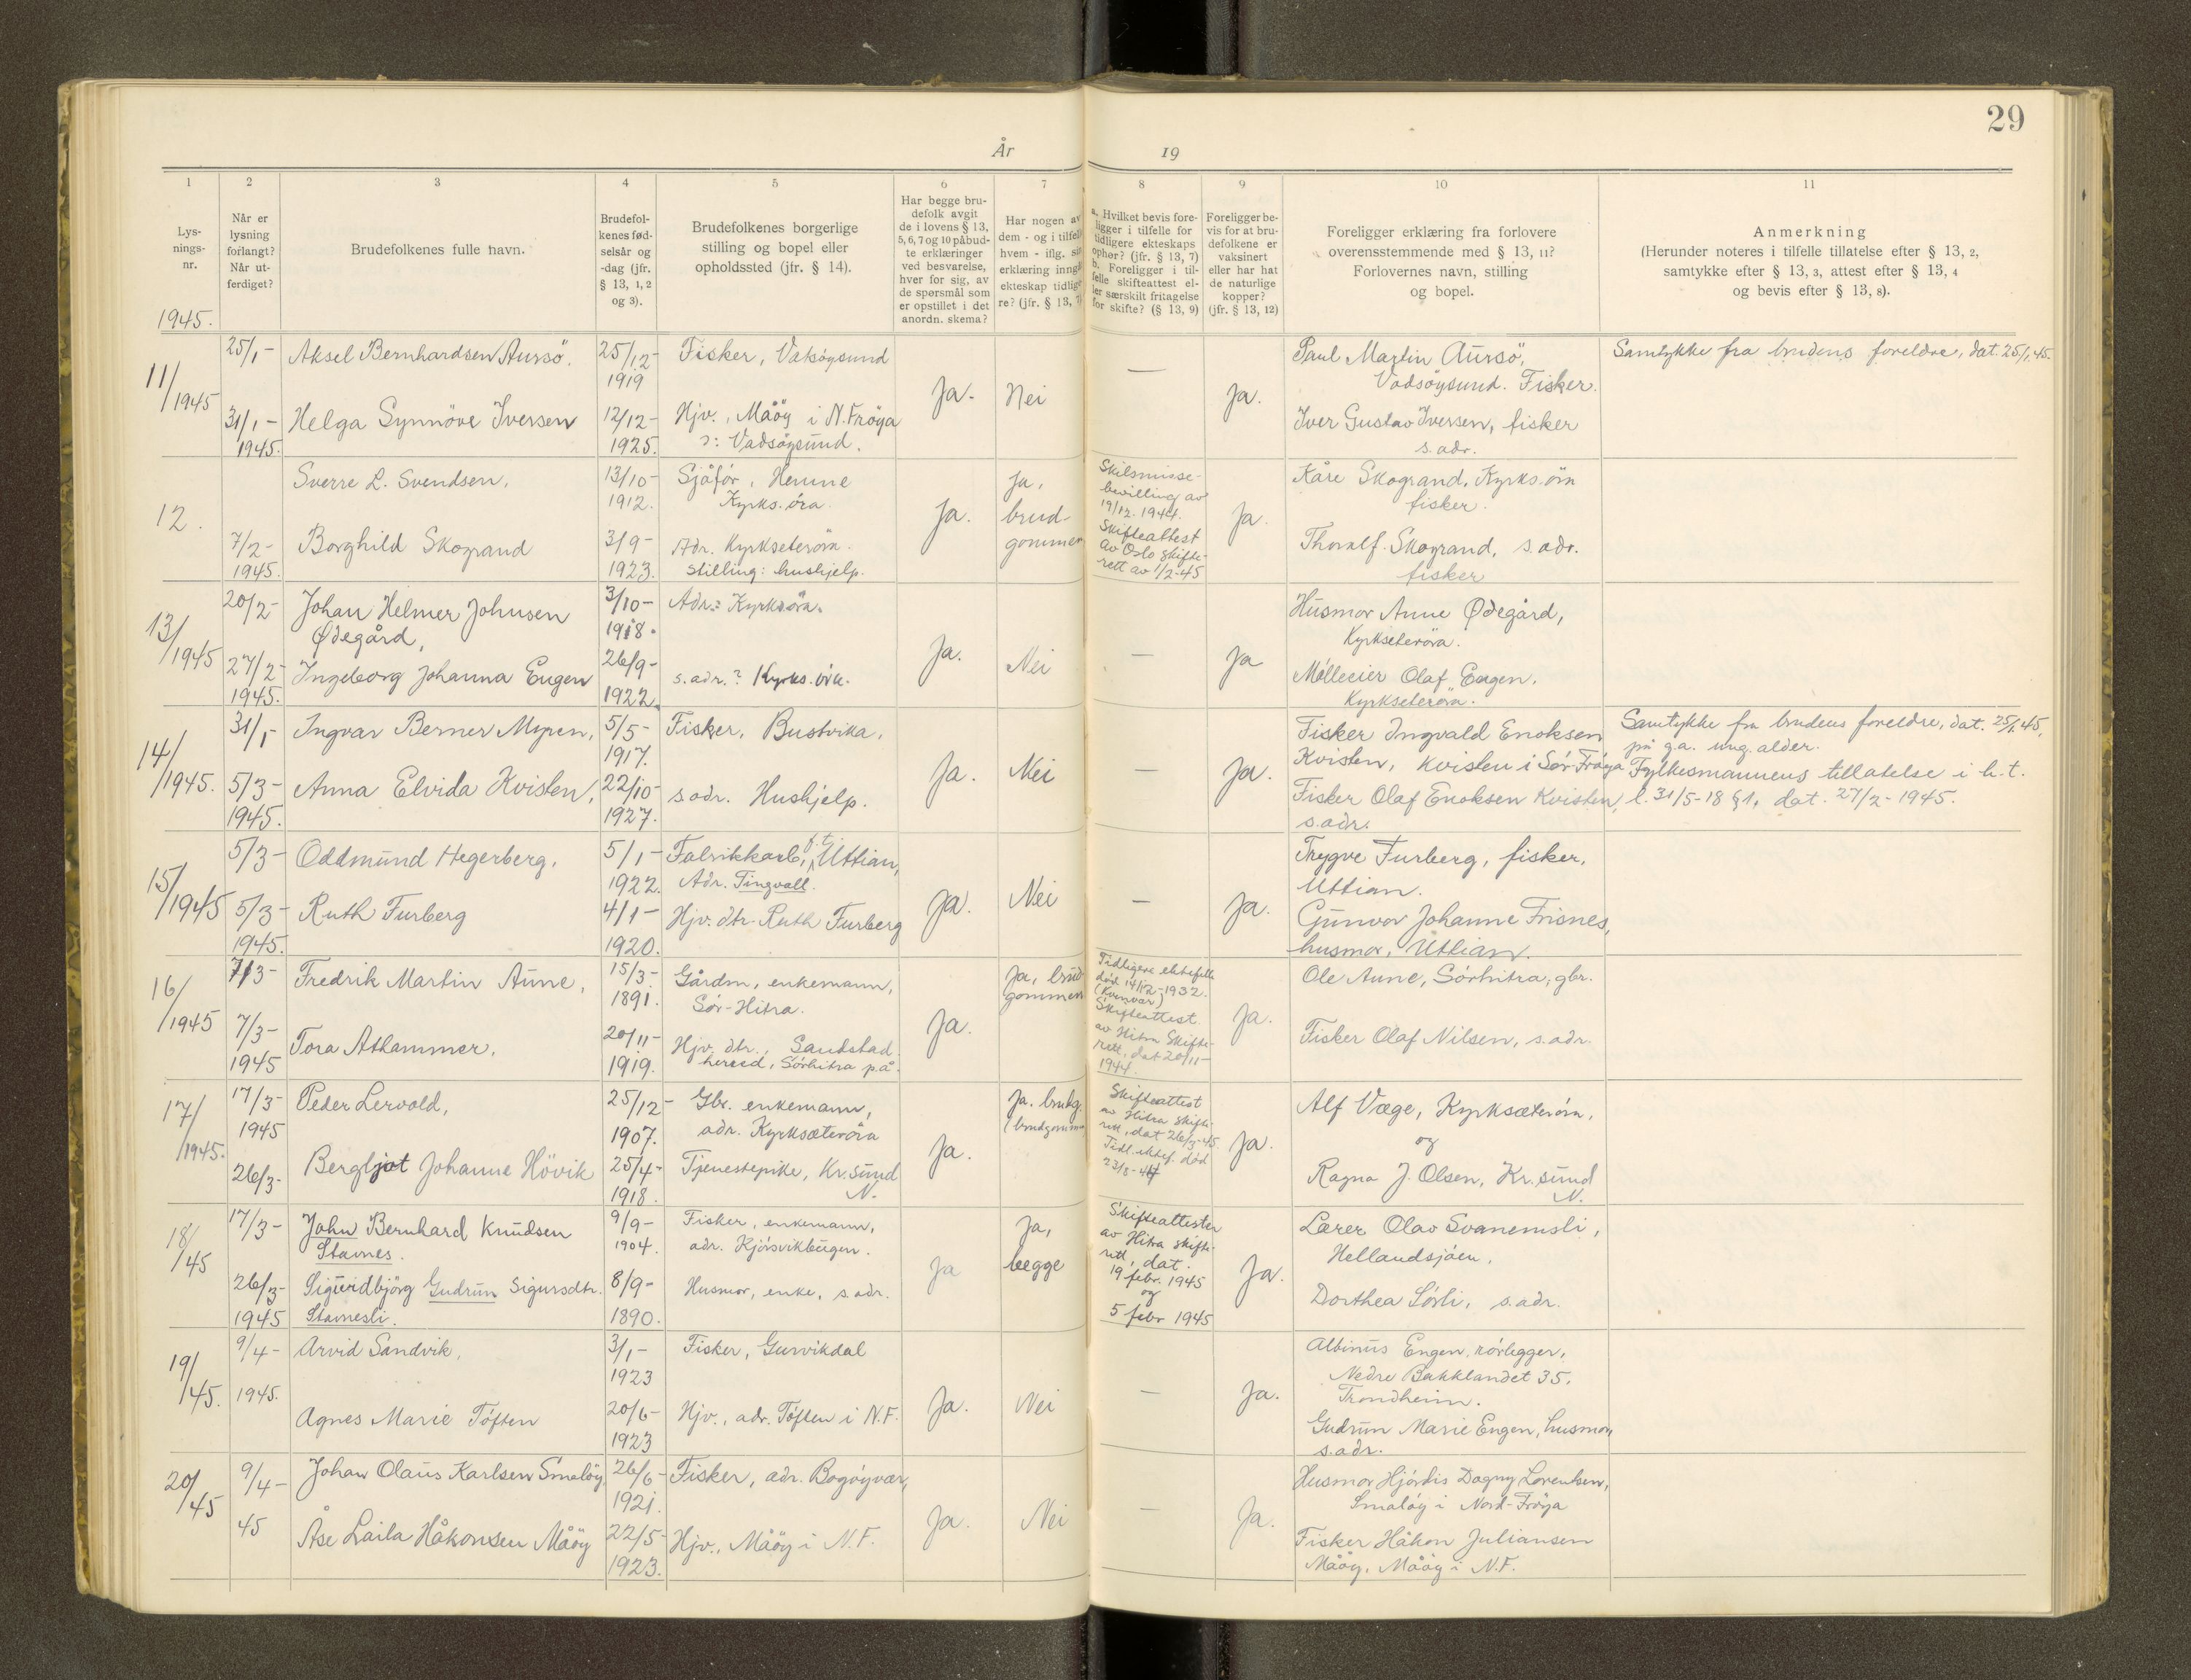 29
År 19
1 2 3 4 5 6 7 8 9 10 11
Lys-
nings-
nr.
1945.
Når er
lysning
forlangt?
Når ut-
ferdiget?
Brudefolkenes fulle navn.
Brudefol-
kenes fød-
selsår og
-dag (jfr.
§ 13, 1, 2
og 3).
Brudefolkenes borgerlige
stilling og bopel eller
opholdssted (jfr. § 14).
Har begge bru-
defolk avgit
de i lovens § 13,
5, 6, 7 og 10 påbud-
te erklæringer
ved besvarelse,
hver for sig, av
de spørsmål som
er opstillet i det
anordn. skema?
Har nogen av
dem - og i tilfell
hvem - iflg. sin
erklæring inngå
ekteskap tidlige
re? (jfr. § 13, 7)
a. Hvilket bevis fore-
ligger i tilfelle for
tidligere ekteskaps
ophør? (jfr. § 13, 7)
b. Foreligger i til-
felle skifteattest el-
ler særskilt fritagelse
for skifte? (§ 13, 9)
Foreligger be-
vis for at bru-
defolkene er
vaksinert
eller har hat
de naturlige
kopper?
(jfr. § 13, 12)
Foreligger erklæring fra forlovere
overensstemmende med § 13, 11?
Forlovernes navn, stilling
og bopel.
Anmerkning
(Herunder noteres i tilfelle tillatelse efter § 13, 2,
samtykke efter § 13, 3, attest efter § 13, 4
og bevis efter § 13, 8).
11/1945
25/1-
31/1-
1945.
Aksel Bernhardsen Aursö.
Helga Synnöve Iversen
25/12-
1919
12/12-
1925.
Fisker, Vaksöysund
Hjv., Måöy i N. Fröya
?: Vadsöysund.
Ja.
Nei
—
Ja.
Paul Martin Aursö,
Vadsöysund. Fisker.
Iver Gustav Iversen, fisker
s. adr.
Samtykke fra brudens foreldre, dat. 25/1.45.
12.
7/2-
1945.
Sverre L. Svendsen,
Borghild Skogrand
13/10-
1912.
3/9-
1923.
Sjåför, Hemne
Kyrks.öra.
Adr. Kyrkseteröra.
Stilling: hushjelp.
Ja.
Ja,
brud-
gommen
Skilsmisse-
bevilling av
19/12. 1944.
Skifteattest
av Oslo skifte-
rett av 1/2-45
Ja.
Kåre Skogrand, Kyrks.öra
fisker.
Thoralf Skogrand, s. adr.
fisker
13/1945
20/2-
27/2-
1945.
Johan Helmer Johnsen
Ødegård,
Ingeborg Johanna Engen
3/10-
1918.
26/9-
1922.
Adr.: Kyrksöra.
s. adr.? Kyrks.öra.
Ja.
Nei
—
Ja
Husmor Anne Ødegård,
Kyrkseteröra.
Möllecier Olaf Engen,
Kyrkseteröra.
14/1945.
31/1-
5/3-
1945.
Ingvar Berner Myren,
Anna Elvida Kvisten,
5/5-
1917.
22/10-
1927.
Fisker, Bustvika,
s. adr. Hushjelp.
Ja.
Nei
—
Ja.
Fisker Ingvald Enoksen
Kvisten, Kvisten i Sör-Fröya
Fisker Olaf Enoksen Kvisten,
s. adr.
Samtykke fra brudens foreldre, dat. 25/1.45,
på g.a. ung. alder.
Fylkesmannens tillatelse i h.t.
l. 31/5-18 § 1, dat. 27/2-1945.
15/1945
5/3-
5/3-
1945.
Oddmund Hegerberg,
Ruth Furberg
5/1-
1922.
4/1-
1920.
Fabrikkarb., f.t. Uttian,
Adr. Tingvall.
Hjv. dtr. Ruth Furberg
Ja.
Nei
—
Ja.
Trygve Furberg, fisker,
Uttian.
Gunvor Johanne Frisnes,
husmor, Uttian.
16/1945
7/3-
7/3-
1945
Fredrik Martin Aune,
Tora Athammer,
15/3-
1891.
20/11-
1919.
Gårdm, enkemann,
Sör-Hitra.
Hjv. dtr., Sandstad
herred, Sörhitra p.å.
Ja.
Ja, brud
gommen
Tidligere ektefelle
död 14/12-1932.
(Kvenvær)
Skifteattest
av Hitra Skifte-
rett, dat 20/11-
1944.
Ja.
Ole Aune, Sörhitra, gbr.
Fisker Olaf Nilsen, s. adr.
17/1945.
17/3-
1945
26/3-
Peder Lervold,
Bergljot Johanne Hövik
25/12-
1907.
25/4-
1918.
Gbr. enkemann,
adr. Kyrksæteröra
Tjenestepike, Kr. sund
N.
Ja.
Ja. brudg.
(brudgomm
Skifteattest
av Hitra skifte-
rett, dat 26/3-45
Tidl. ektef. död
23/8-44
Ja.
Alf Væge, Kyrksæteröra,
og
Ragna J. Olsen, Kr. sund
N.
18/45
17/3-
26/3-
1945
John Bernhard Knudsen
Stamnes.
Sigurdbjörg Gudrun Sigursdtr.
Stamnesli.
9/9-
1904.
8/9-
1890.
Fisker, enkemann,
adr. Kjörsvikbugen.
Husmor, enke, s. adr.
Ja
Ja,
begge
Skifteattester
av Hitra skifte-
rett, dat.
19 febr. 1945
og
5 febr 1945
Ja.
Lærer Olav Svanemsli,
Hellandsjöen,
Dorthea Sörli, s. adr.
19/45.
9/4-
1945.
Arvid Sandvik,
Agnes Marie Töften
3/1-
1923
20/6-
1923
Fisker, Gurvikdal
Hjv., adr. Töften i N.F.
Ja.
Nei
—
Ja.
Albinus Engen, rörlegger,
Nedre Bakklandet 35,
Trondheim.
Gudrun Marie Engen, husmor,
s. adr.
20/45
9/4-
45
Johan Olaus Karlsen Småöy,
Åse Laila Håkonsen Måöy
26/6-
1921.
22/5-
1923.
Fisker, adr. Bogöyvær,
Hjv., Måöy i N.F.
Ja.
Nei
—
Ja.
Husmor Hjördis Dagny Lorentsen,
Smaöy i Nord-Fröya
Fisker Håkon Juliansen
Måöy, Måöy i N.F.